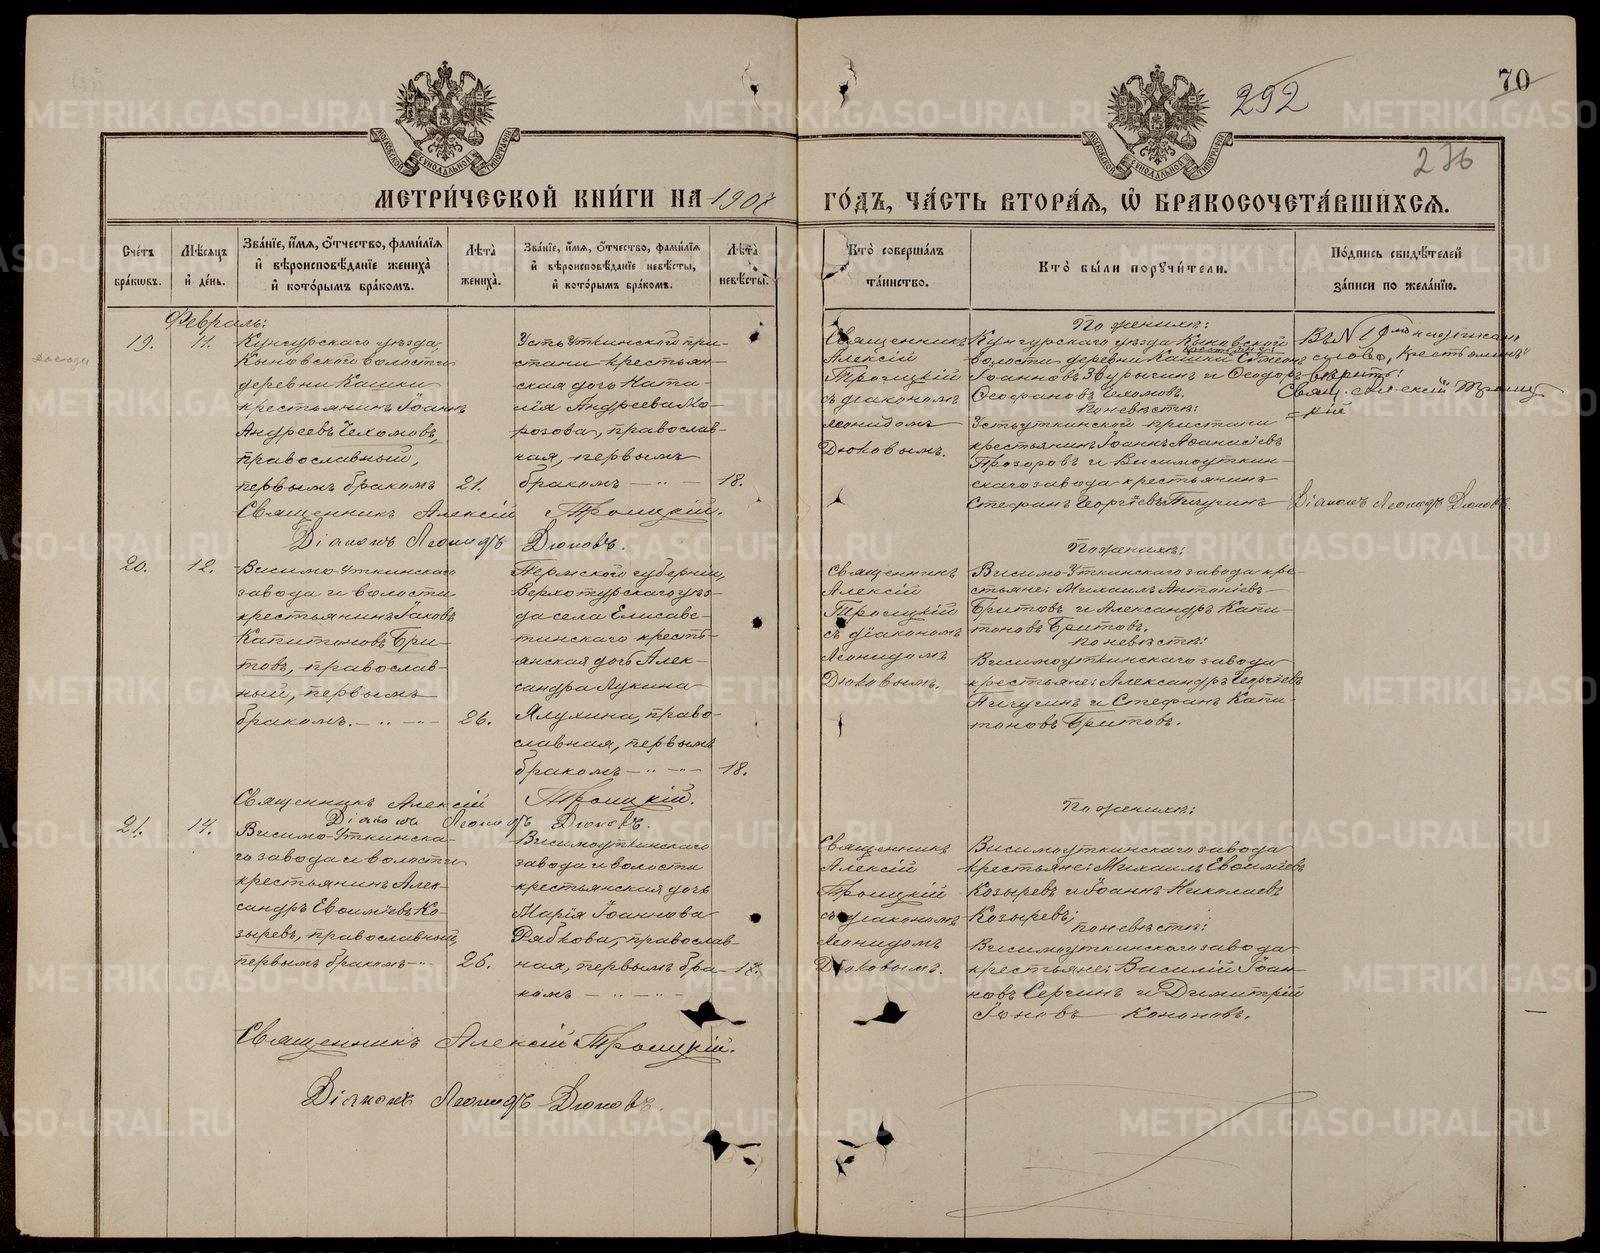 292
70
236
МОСКОВСКОЙ СѴНОДАЛЬНОЙ ТИПОГРАФІИ
МОСКОВСКОЙ СѴНОДАЛЬНОЙ ТИПОГРАФІИ
МЕТРИ́ЧЕСКОЙ КНИ́ГИ НА 1908
ГО́ДЪ, ЧА́СТЬ ВТОРА́Я, Ѡ БРАКОСОЧЕТА́ВШИХСЯ.
Сче́тъ бра́кѡвъ.
Мѣ́сяцъ и де́нь.
Зва́нїе, и́мя, о́тчество, фами́лїя и вѣроисповѣ́данїе жениха̀ и кото́рымъ бра́комъ.
Лѣ́та жениха̀.
Зва́нїе, и́мя, о́тчество, фами́лїя и вѣроисповѣ́данїе невѣ́сты, и кото́рымъ бра́комъ.
Лѣ́та невѣ́сты.
Кто̀ соверша́лъ та́инство.
Кто̀ бы́ли порꙋчи́тели.
По́дпись свидѣ́телей за́писи по жела́нїю.
Февраль:
19.
11.
Кунгурскаго уѣзда,
Кыновской волости
деревни Кашки
крестьянинъ Іоаннъ
Андреевъ Чехомовъ,
православный,
первымъ бракомъ
21.
Усть-Уткинской при-
стани крестьян-
ская дочь Ната-
лія Андреева Мо-
розова, православ-
ная, первымъ
бракомъ — „ —
18.
Священникъ
Алексій
Троицкій
съ діакономъ
Леонидомъ
Дюковымъ.
По женихѣ:
Кунгурскаго уѣзда Кыновской
волости деревни Кашки
Іоанновъ Звурыгинъ и Ѳеодоръ
Ѳеофановъ Чехомовъ.
По невѣстѣ:
Устьуткинской пристани
крестьянинъ Іоаннъ Аѳанасіевъ
Прозоровъ и Висимоуткин-
скаго завода крестьянинъ
Стефанъ Георгіевъ Пичугинъ
Въ № 19
слово, „крестьянинъ“
вѣрить:
Свящ. Алексій Троиц-
кій
Діаконъ Леонидъ Дюковъ.
Священникъ Алексій Троицкій.
Діаконъ Леонидъ Дюковъ.
20.
12.
Висимо-Уткинскаго
завода и волости
крестьянинъ Іаковъ
Капитоновъ Бри-
товъ, православ-
ный, первымъ
бракомъ. — „ —
26.
Пермской губерніи,
Верхотурскаго уѣз-
да села Елисаве-
тинскаго кресть-
янская дочь Алек-
сандра Лукина
Ялухина, право-
славная, первымъ
бракомъ — „ —
18.
Священникъ
Алексій
Троицкій
съ діакономъ
Леонидомъ
Дюковымъ.
По женихѣ:
Висимо-Уткинскаго завода кре-
стьяне: Михаилъ Антоніевъ
Бритовъ и Александръ Капи-
тоновъ Бритовъ.
По невѣстѣ:
Висимоуткинскаго завода
крестьяне: Александръ Георгіевъ
Пичугинъ и Стефанъ Капи-
тоновъ Бритовъ.
Священникъ Алексій Троицкій.
Діаконъ Леонидъ Дюковъ.
21.
14.
Висимо-Уткинска-
го завода и волости
крестьянинъ Алек-
сандръ Евѳиміевъ Ко-
зыревъ, православный,
первымъ бракомъ — „
26.
Висимоуткинскаго
завода и волости
крестьянская дочь
Марія Іоаннова
Рябкова, православ-
ная, первымъ бра-
комъ — „ —
18.
Священникъ
Алексій
Троицкій
съ діакономъ
Леонидомъ
Дюковымъ.
По женихѣ:
Висимоуткинскаго завода
крестьяне: Михаилъ Евѳиміевъ
Козыревъ и Іоаннъ Николаевъ
Козыревъ;
по невѣстѣ:
Висимоуткинскаго завода
крестьяне: Василій Іоан-
новъ Сергинъ и Димитрій
Іоновъ Кононовъ.
Священникъ Алексій Троицкій.
Діаконъ Леонидъ Дюковъ.